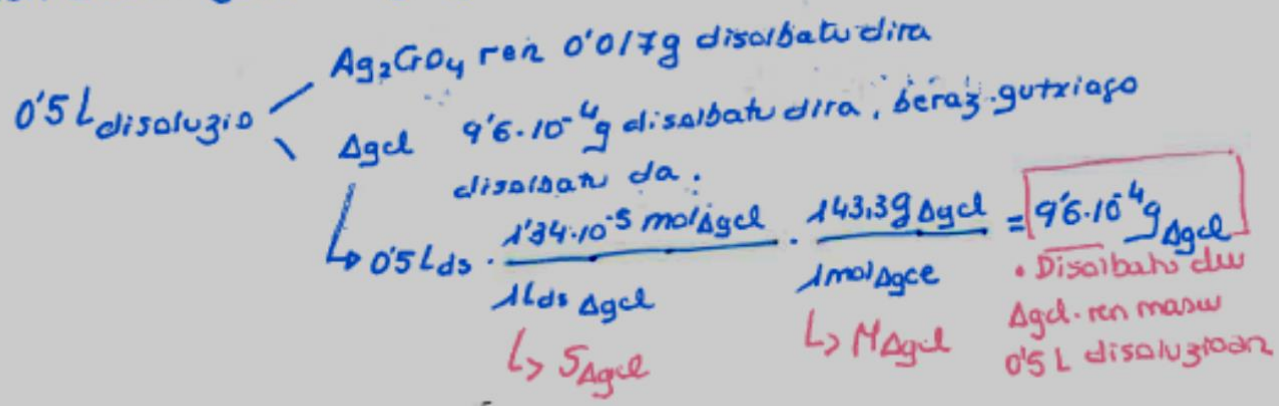 Ag₂CrO₄ ren 0'017g disolbatu dira
0'5 L disoluzio
AgCl 9'6·10⁻⁴g disolbatu dira, beraz gutxiago
disolbatu da.
0'5 L ds · 1'34·10⁻⁵ mol AgCl / 1 L ds AgCl · 143,3g AgCl / 1 mol AgCl = 9'6·10⁻⁴g AgCl
↳ S AgCl
↳ M AgCl
• Disolbatu den
AgCl-ren masa
0'5 L disoluzioan